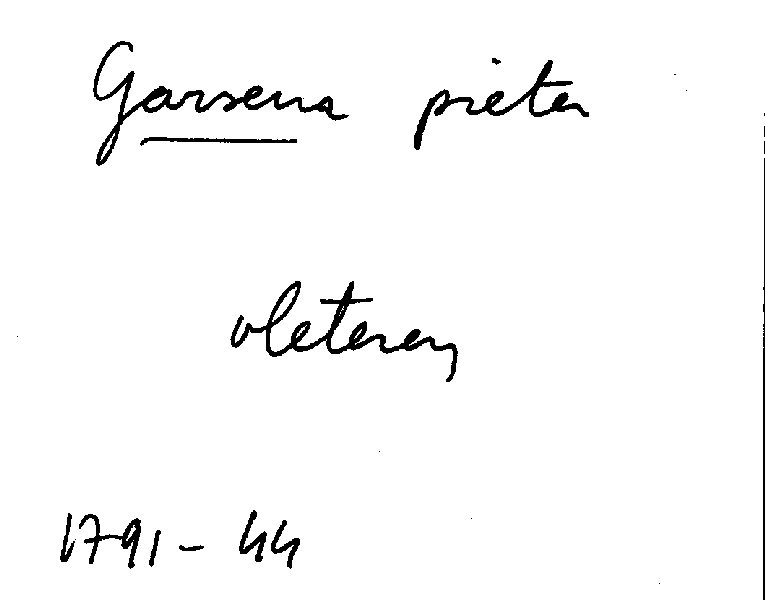 Garsena pieter
vleteren
1791 - 44